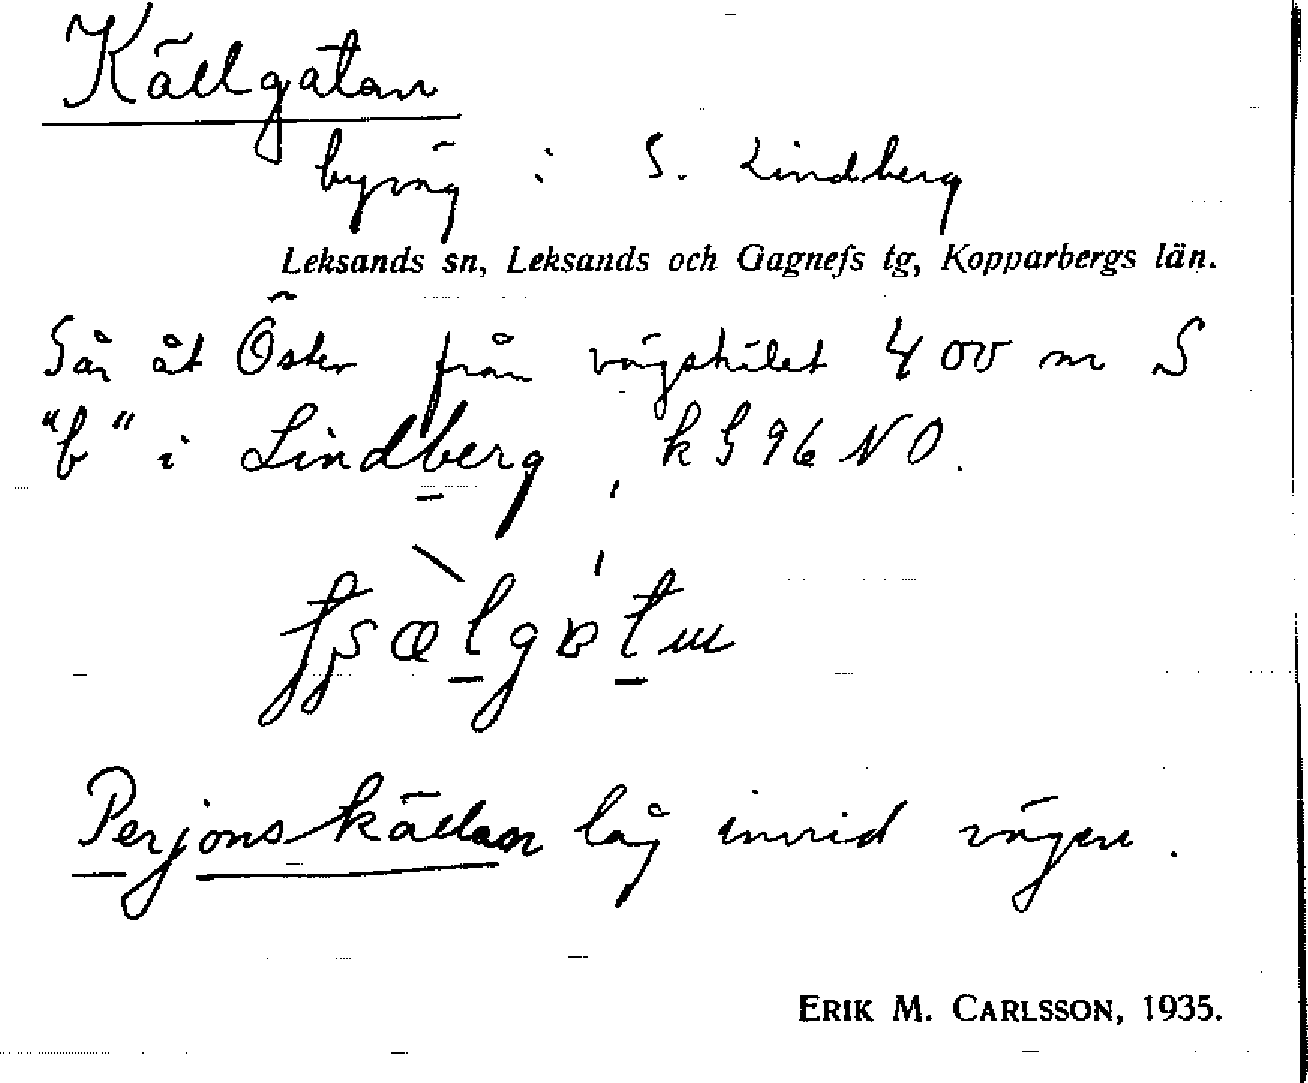 Källgatan
byväg i S. Lindberg
Leksands sn, Leksands och Gagnefs tg, Kopparbergs län.
Går åt Öster från vägskälet 400 m S
"b" i Lindberg kG 96 NO.
Perjonskällan låg invid vägen.
ERIK M. CARLSSON, 1935.